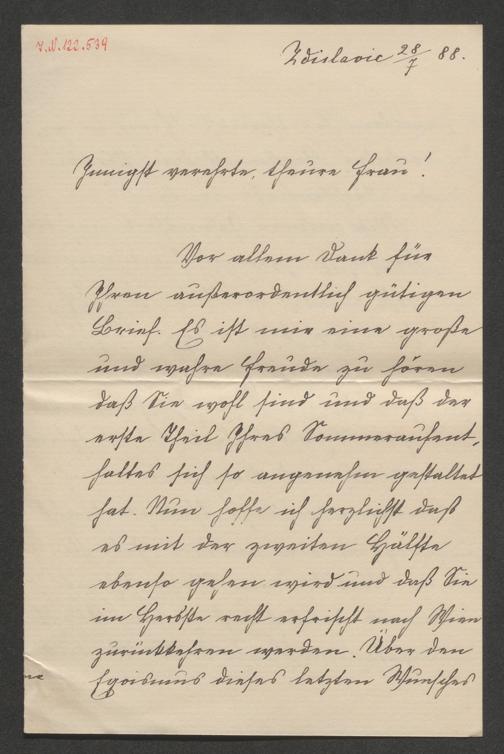 J.N. 122.539
Zdislavic 28/7 88.
Innigst verehrte, theure Frau!
Vor allem Dank für
Ihren außerordentlich gütigen
Brief. Es ist mir eine große
und wahre Freude zu hören
daß Sie wohl sind und daß der
erste Theil Ihres Sommeraufent-
haltes sich so angenehm gestaltet
hat. Nun hoffe ich herzlichst daß
es mit der zweiten Hälfte
ebenso gehen wird und daß Sie
im Herbste recht erfrischt nach Wien
zurückkehren werden. Über den
Egoismus dieses letzten Wunsches